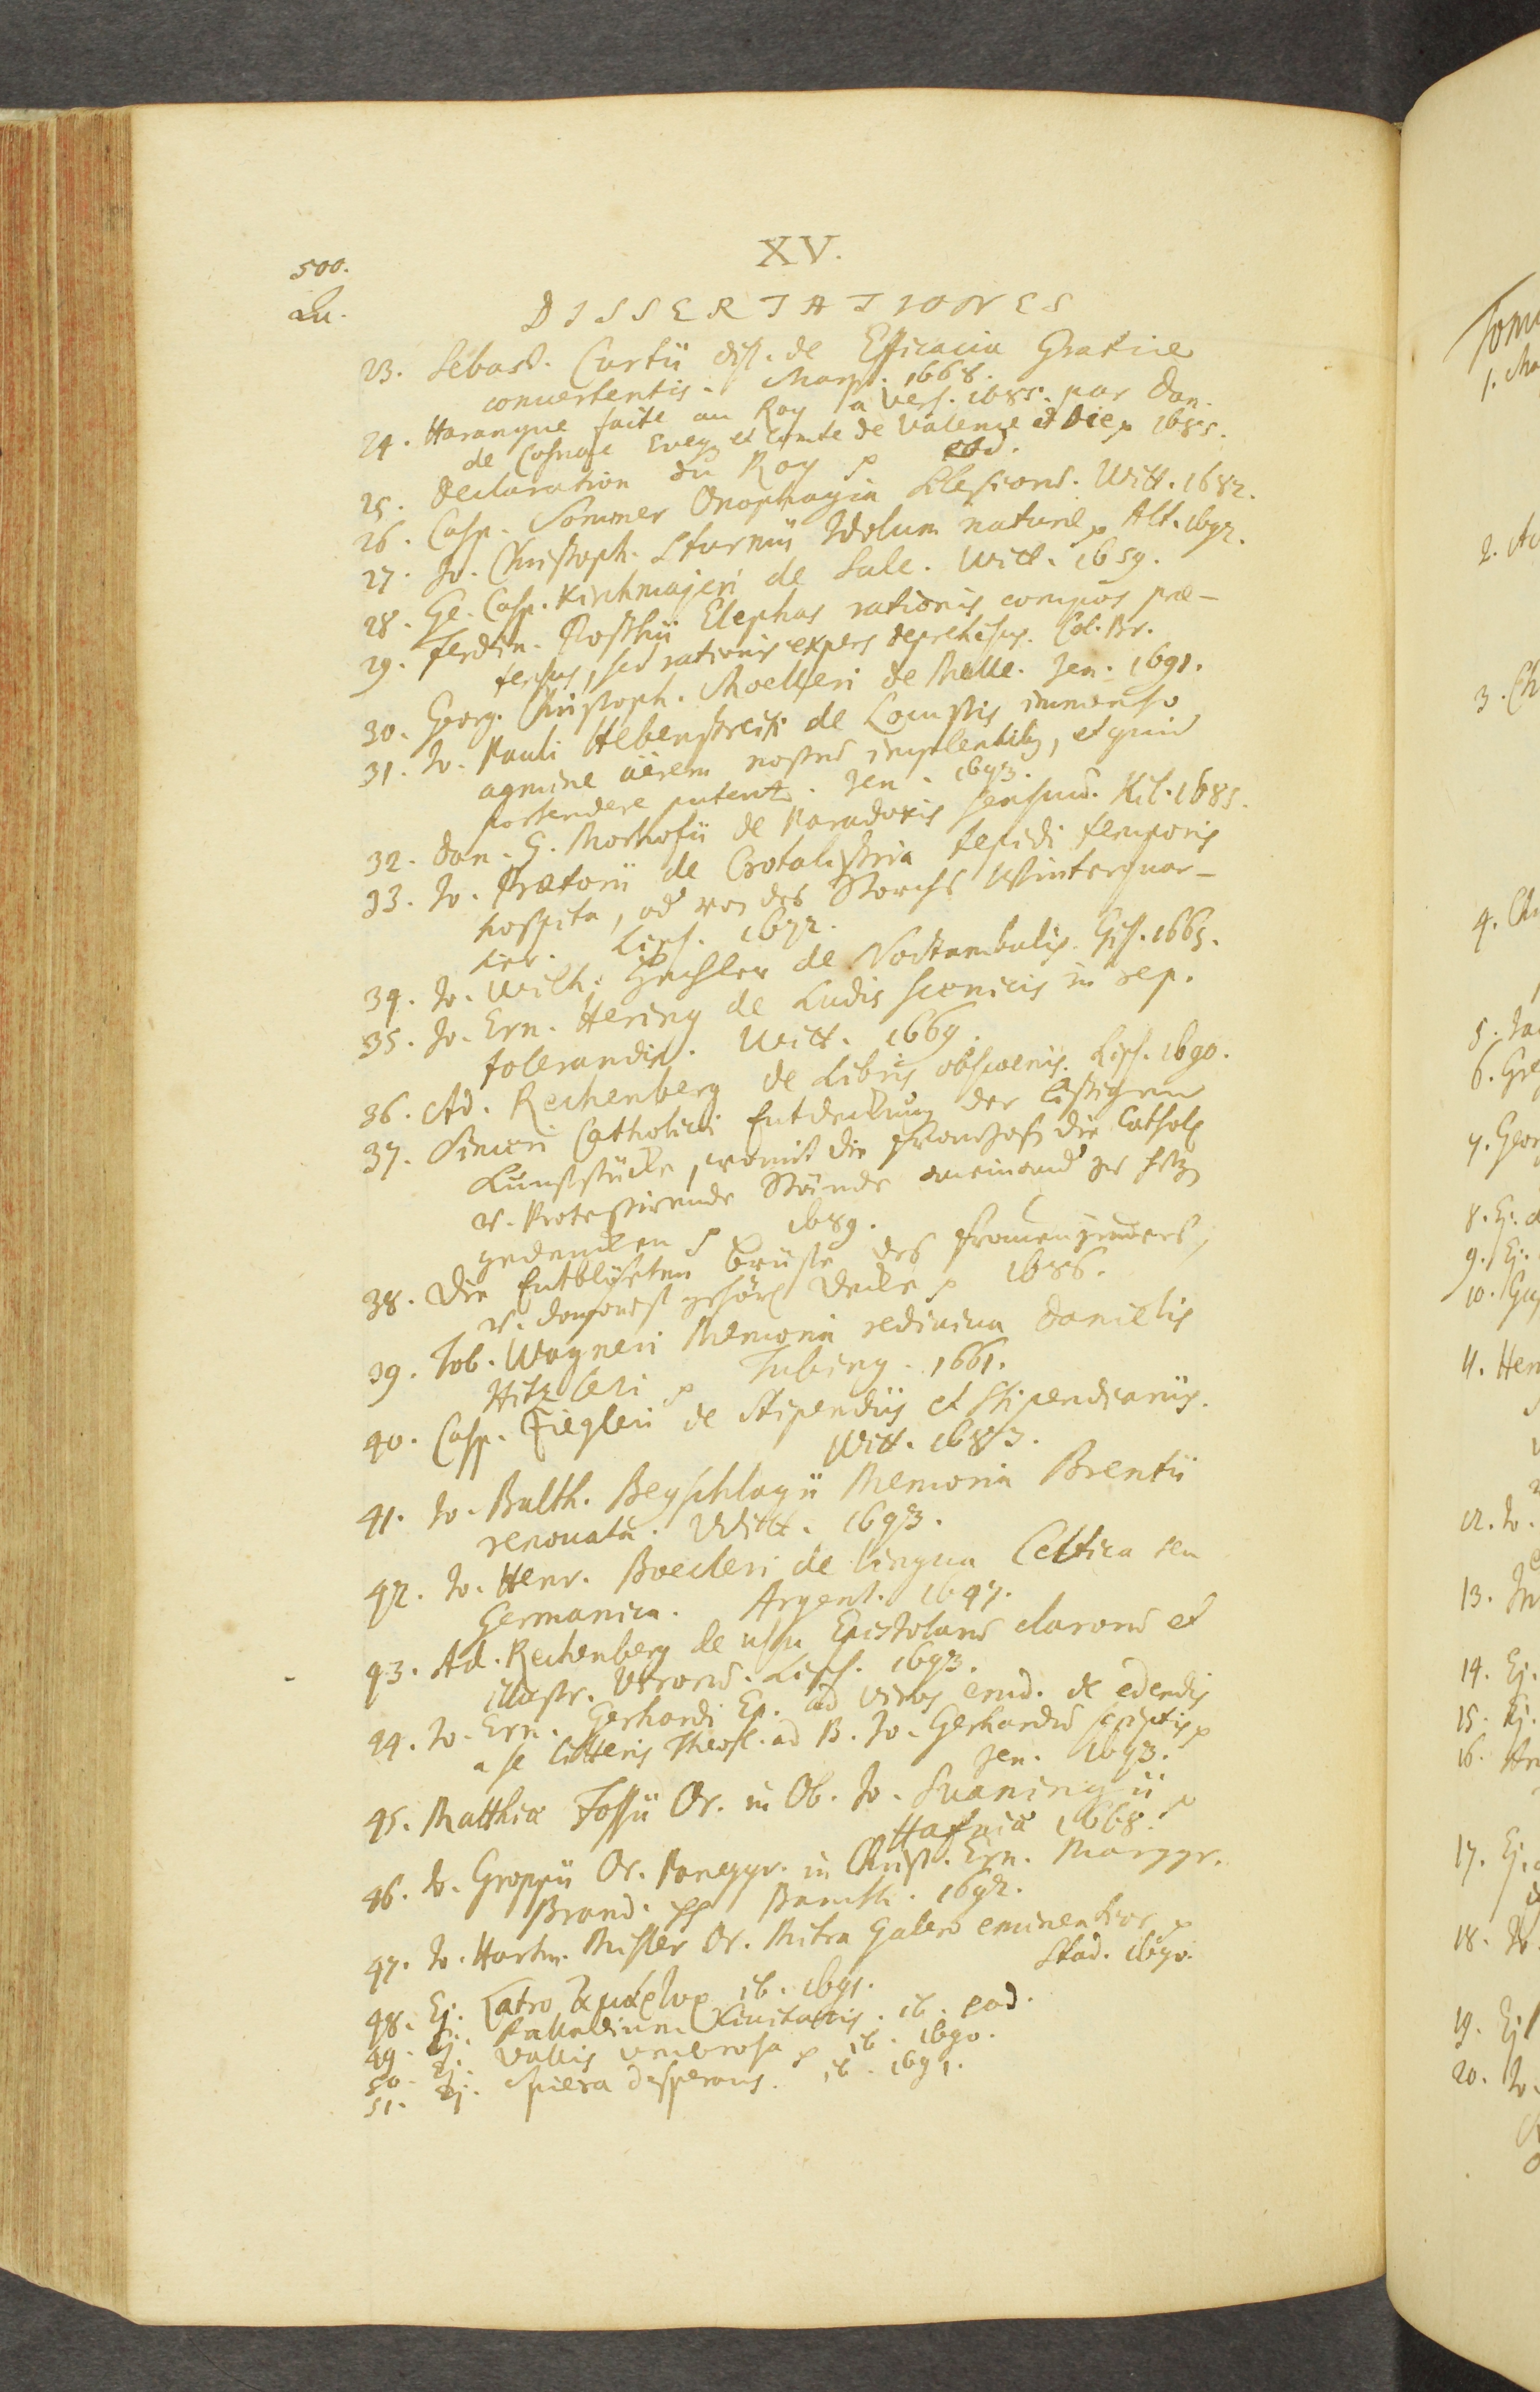 XV.
500.
Lu.
DISSERTATIONES
23. Sebast. Curtii diss. de Efficacia Gratiae
convertentis. Marp. 1668.
24. Harangue faite au Roy a Vers. 1685. par Dan.
de Cosnac Eveq. et Comte de Valence et Die p 1685.
25. Declaration du Roy p eod.
26. Casp. Sommer Onophagia Silesiorum. Witt. 1682.
27. Jo. Christoph. Sturmii Idolum naturae p Alt. 1692.
28. Ge. Casp. Kirchmajeri de Sale. Witt. 1659.
29. Ferdin. Posthii Elephas rationis compos prae-
tensus, sed rationis expers deprehensus. Col. Br.
30. Georg. Christoph. Moelleri de Melle. Jen. 1691.
31. Jo. Pauli Hebenstreiti de Locustis immenso
agmine aërem nostrum implentibus, et quid
portendere putentur. Jen. 1693.
32. Dan. G. Morhofii de Paradoxis sensuum. Kil. 1685.
33. Jo. Praetorii de Crotalistria tepidi temporis
hospita, od von des Storchs Winterquar-
tier. Lips. 1672.
34. Jo. Wilh. de Noctambulis. Gis. 1665.
35. Jo. Ern. Hering de Ludis scenicis in rep.
tolerandis. Witt. 1669.
36. Ad. Rechenberg de Libris obscoenis. Lips. 1690.
37. Sinceri Catholici Entdeckung der listigen
Kunststücke, womit die Franzosen die Cathol.
u. Protestirende Stände aneinand zu hetzen
gedencken p 1689.
38. Die Entblösten Brüste des Frauenzimmers,
u. derselbst gehörl Decke p 1686.
39. Tob. Wagneri Memoria rediviva Danielis
Hitzleri p Tubing. 1661.
40. Casp. Ziegleri de Stipendiis et Stipendiariis.
Witt. 1683.
41. Jo. Balth. Beyschlagii Memoria Brentii
renovata. Witt. 1693.
42. Jo. Henr. Boecleri de lingua Celtica seu
Germanica. Argent. 1647.
43. Ad. Rechenberg de usu Epistolarum clarorum et
illustr. Virorum. Lips. 1693.
44. Jo. Ern. Gerhardi Ep. ad viros erud. de edendis
a se litteris Theol. ad B. Jo. Gerhardum scriptis p
Jen. 1693.
45. Matthiae Fossii Or. in Ob. Jo. Suaningii p
Hafniae 1668.
46. Jo. Groppii Or. Panegyr. in Christ. Ern. Marggr.
Brand. pp Baruth. 1692.
47. Jo. Hartm. Misler Or. Mitra Galero eminentior p
Stad. 1690.
48. Ej. Latro p ib. 1691.
49. Ej. Palladium Civitatis. ib. eod.
50. Ej. Vallis umbrosa p ib. 1690.
51. Ej. Spiera desperans. ib. 1691.